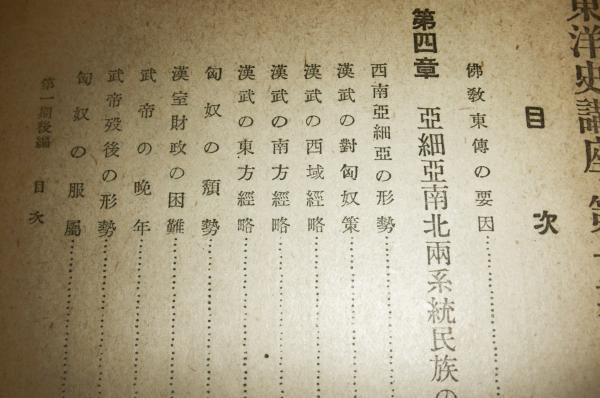 東洋史講座 第十
目次
佛敎東傳の要因
第四章 亞細亞南北兩系統民族の
西南亞細亞の形勢
漢武の對匈奴策
漢武の西域經略
漢武の南方經略
漢武の東方經略
匈奴の頽勢
漢室財政の困難
武帝の晚年
武帝歿後の形勢
匈奴の服屬
第一期後編 目次